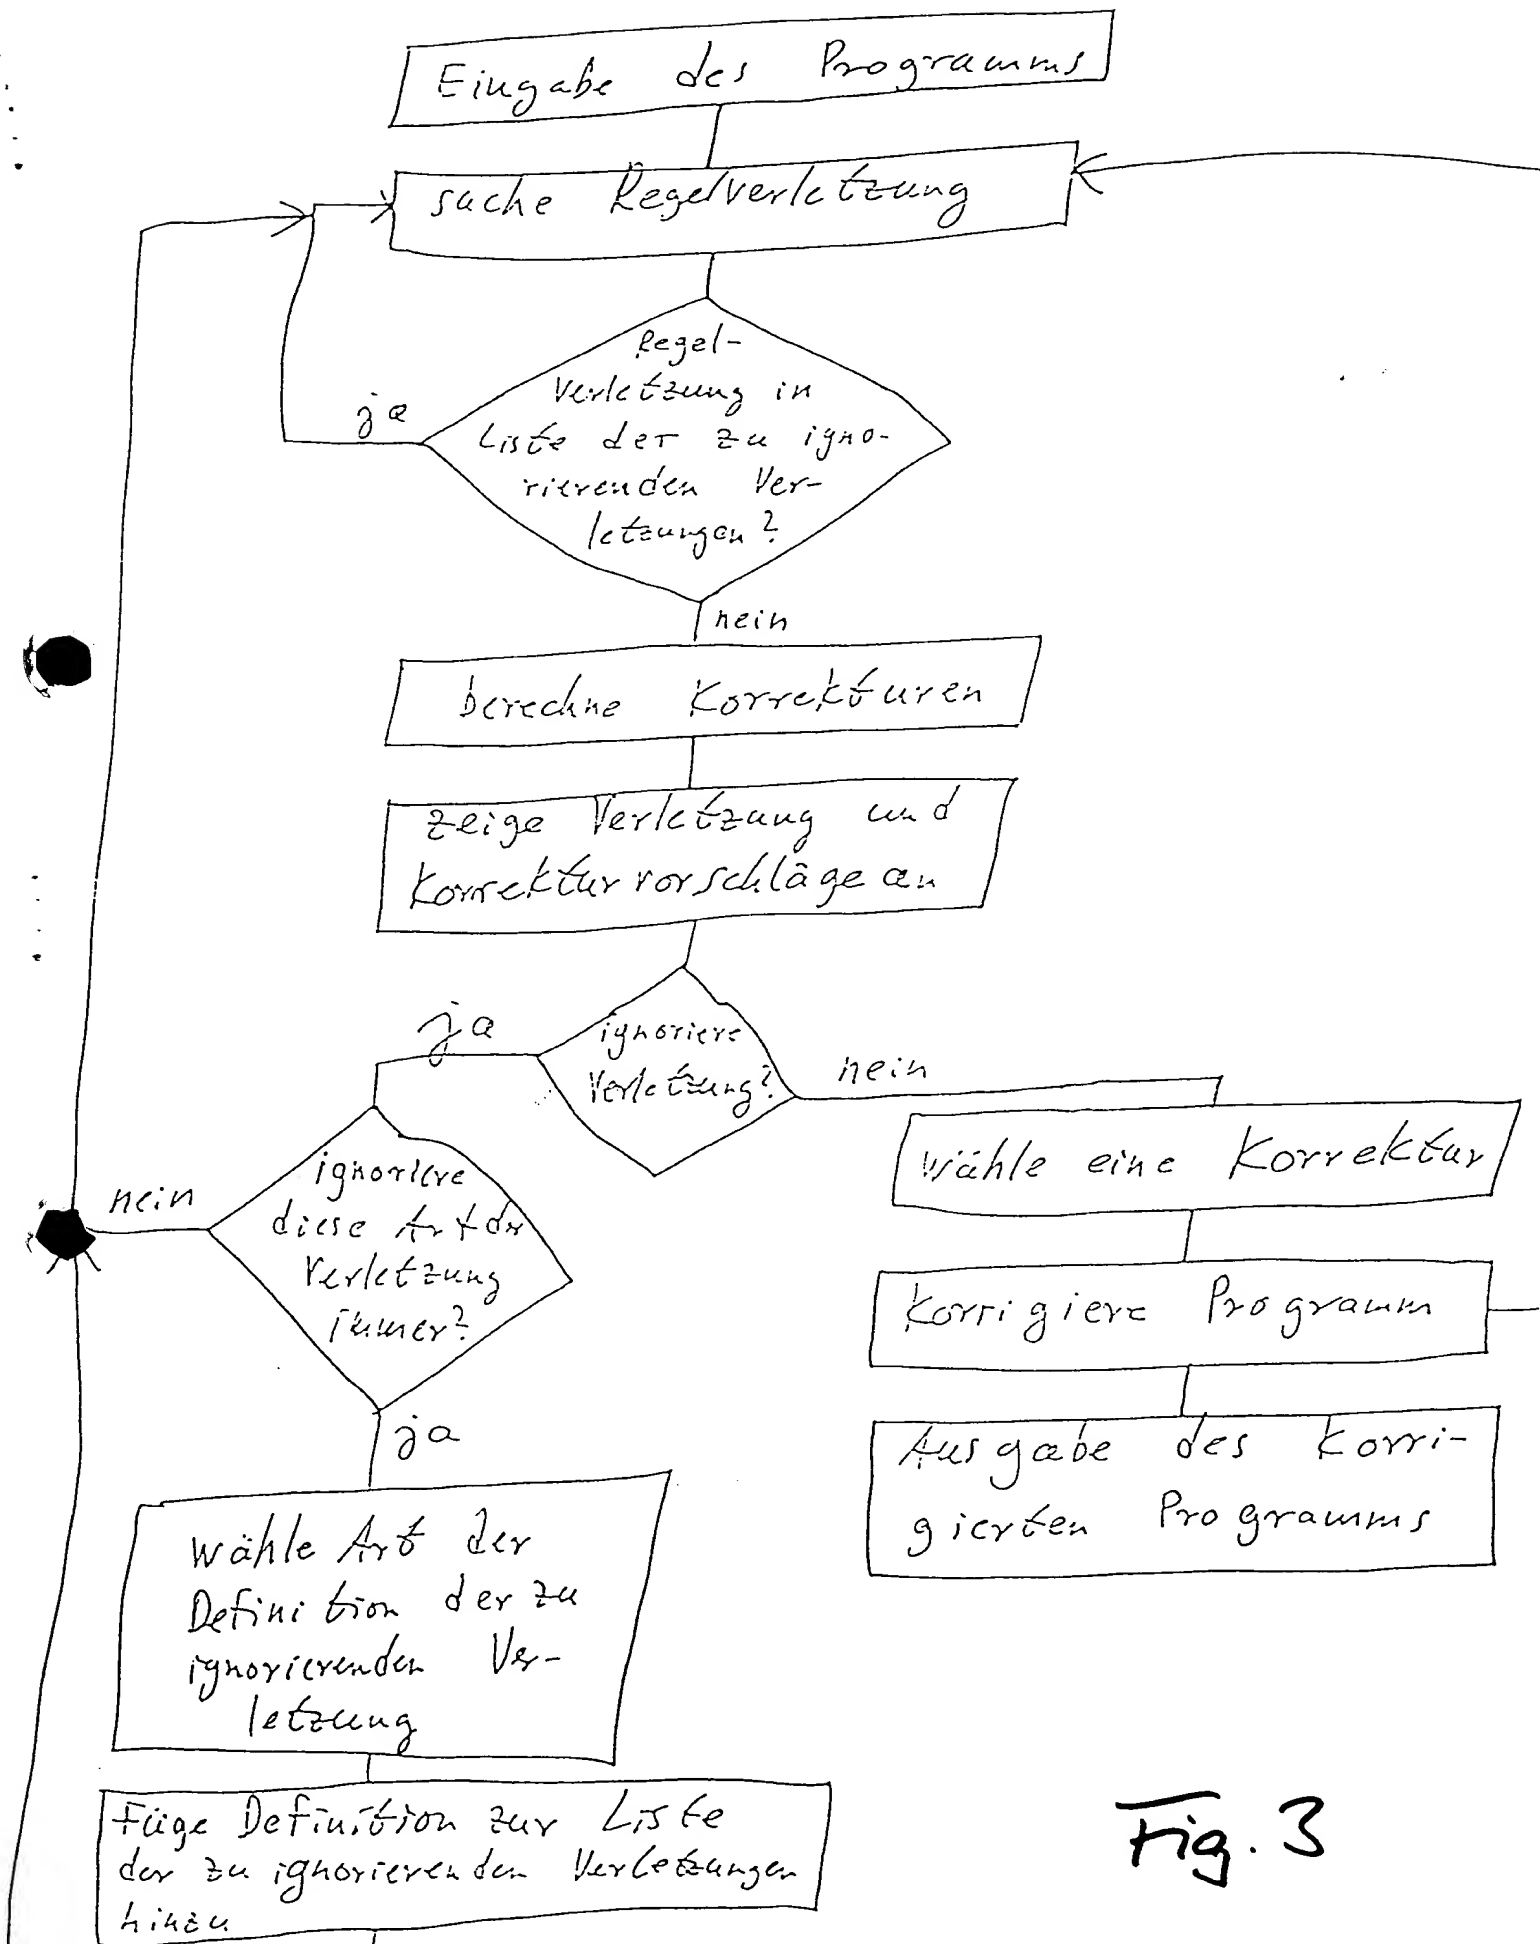 Eingabe des Programms
suche Regelverletzung
Regel-
verletzung in
Liste der zu igno-
rierenden Ver-
letzungen?
ja
nein
berechne Korrekturen
zeige Verletzung und
Korrekturvorschläge an
ignoriere
Verletzung?
ja
nein
wähle eine Korrektur
ignoriere
diese Art der
Verletzung
immer?
nein
ja
Korrigiere Programm
Ausgabe des Korri-
gierten Programms
wähle Art der
Definition der zu
ignorierenden Ver-
letzung
Füge Definition zur Liste
der zu ignorierenden Verletzungen
hinzu
Fig. 3